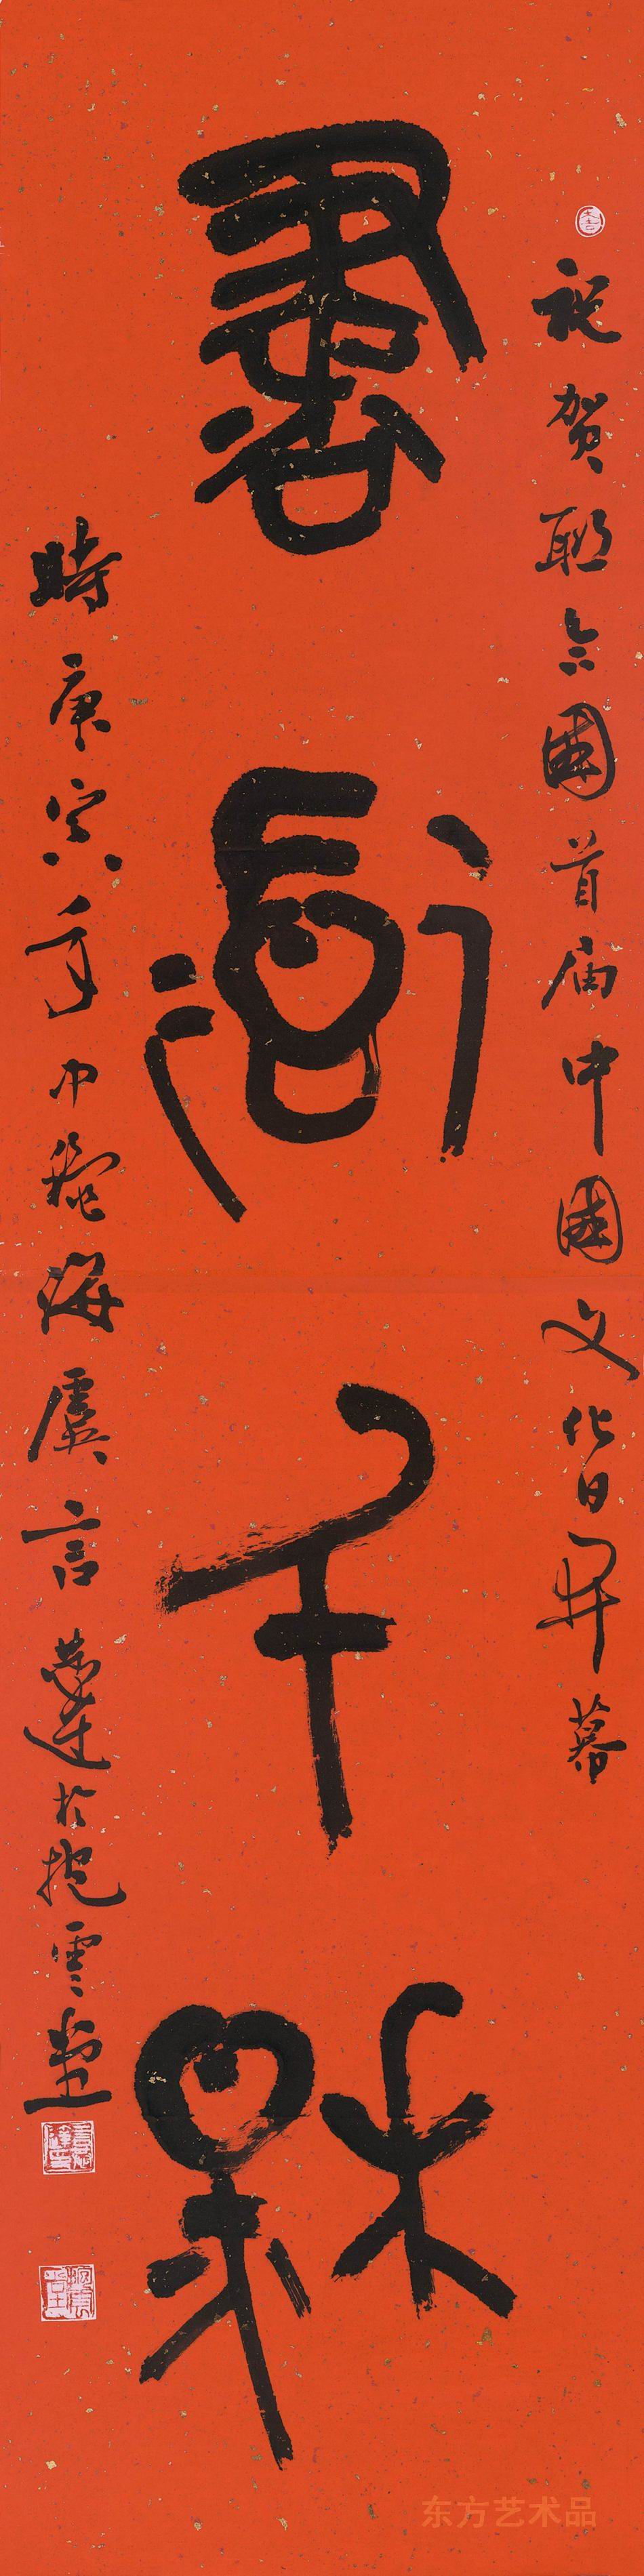 祝贺联合国首届中国文化日开幕
書道千秋
時庚寅年中秋海虞言恭達於抱雲堂
东方艺术品